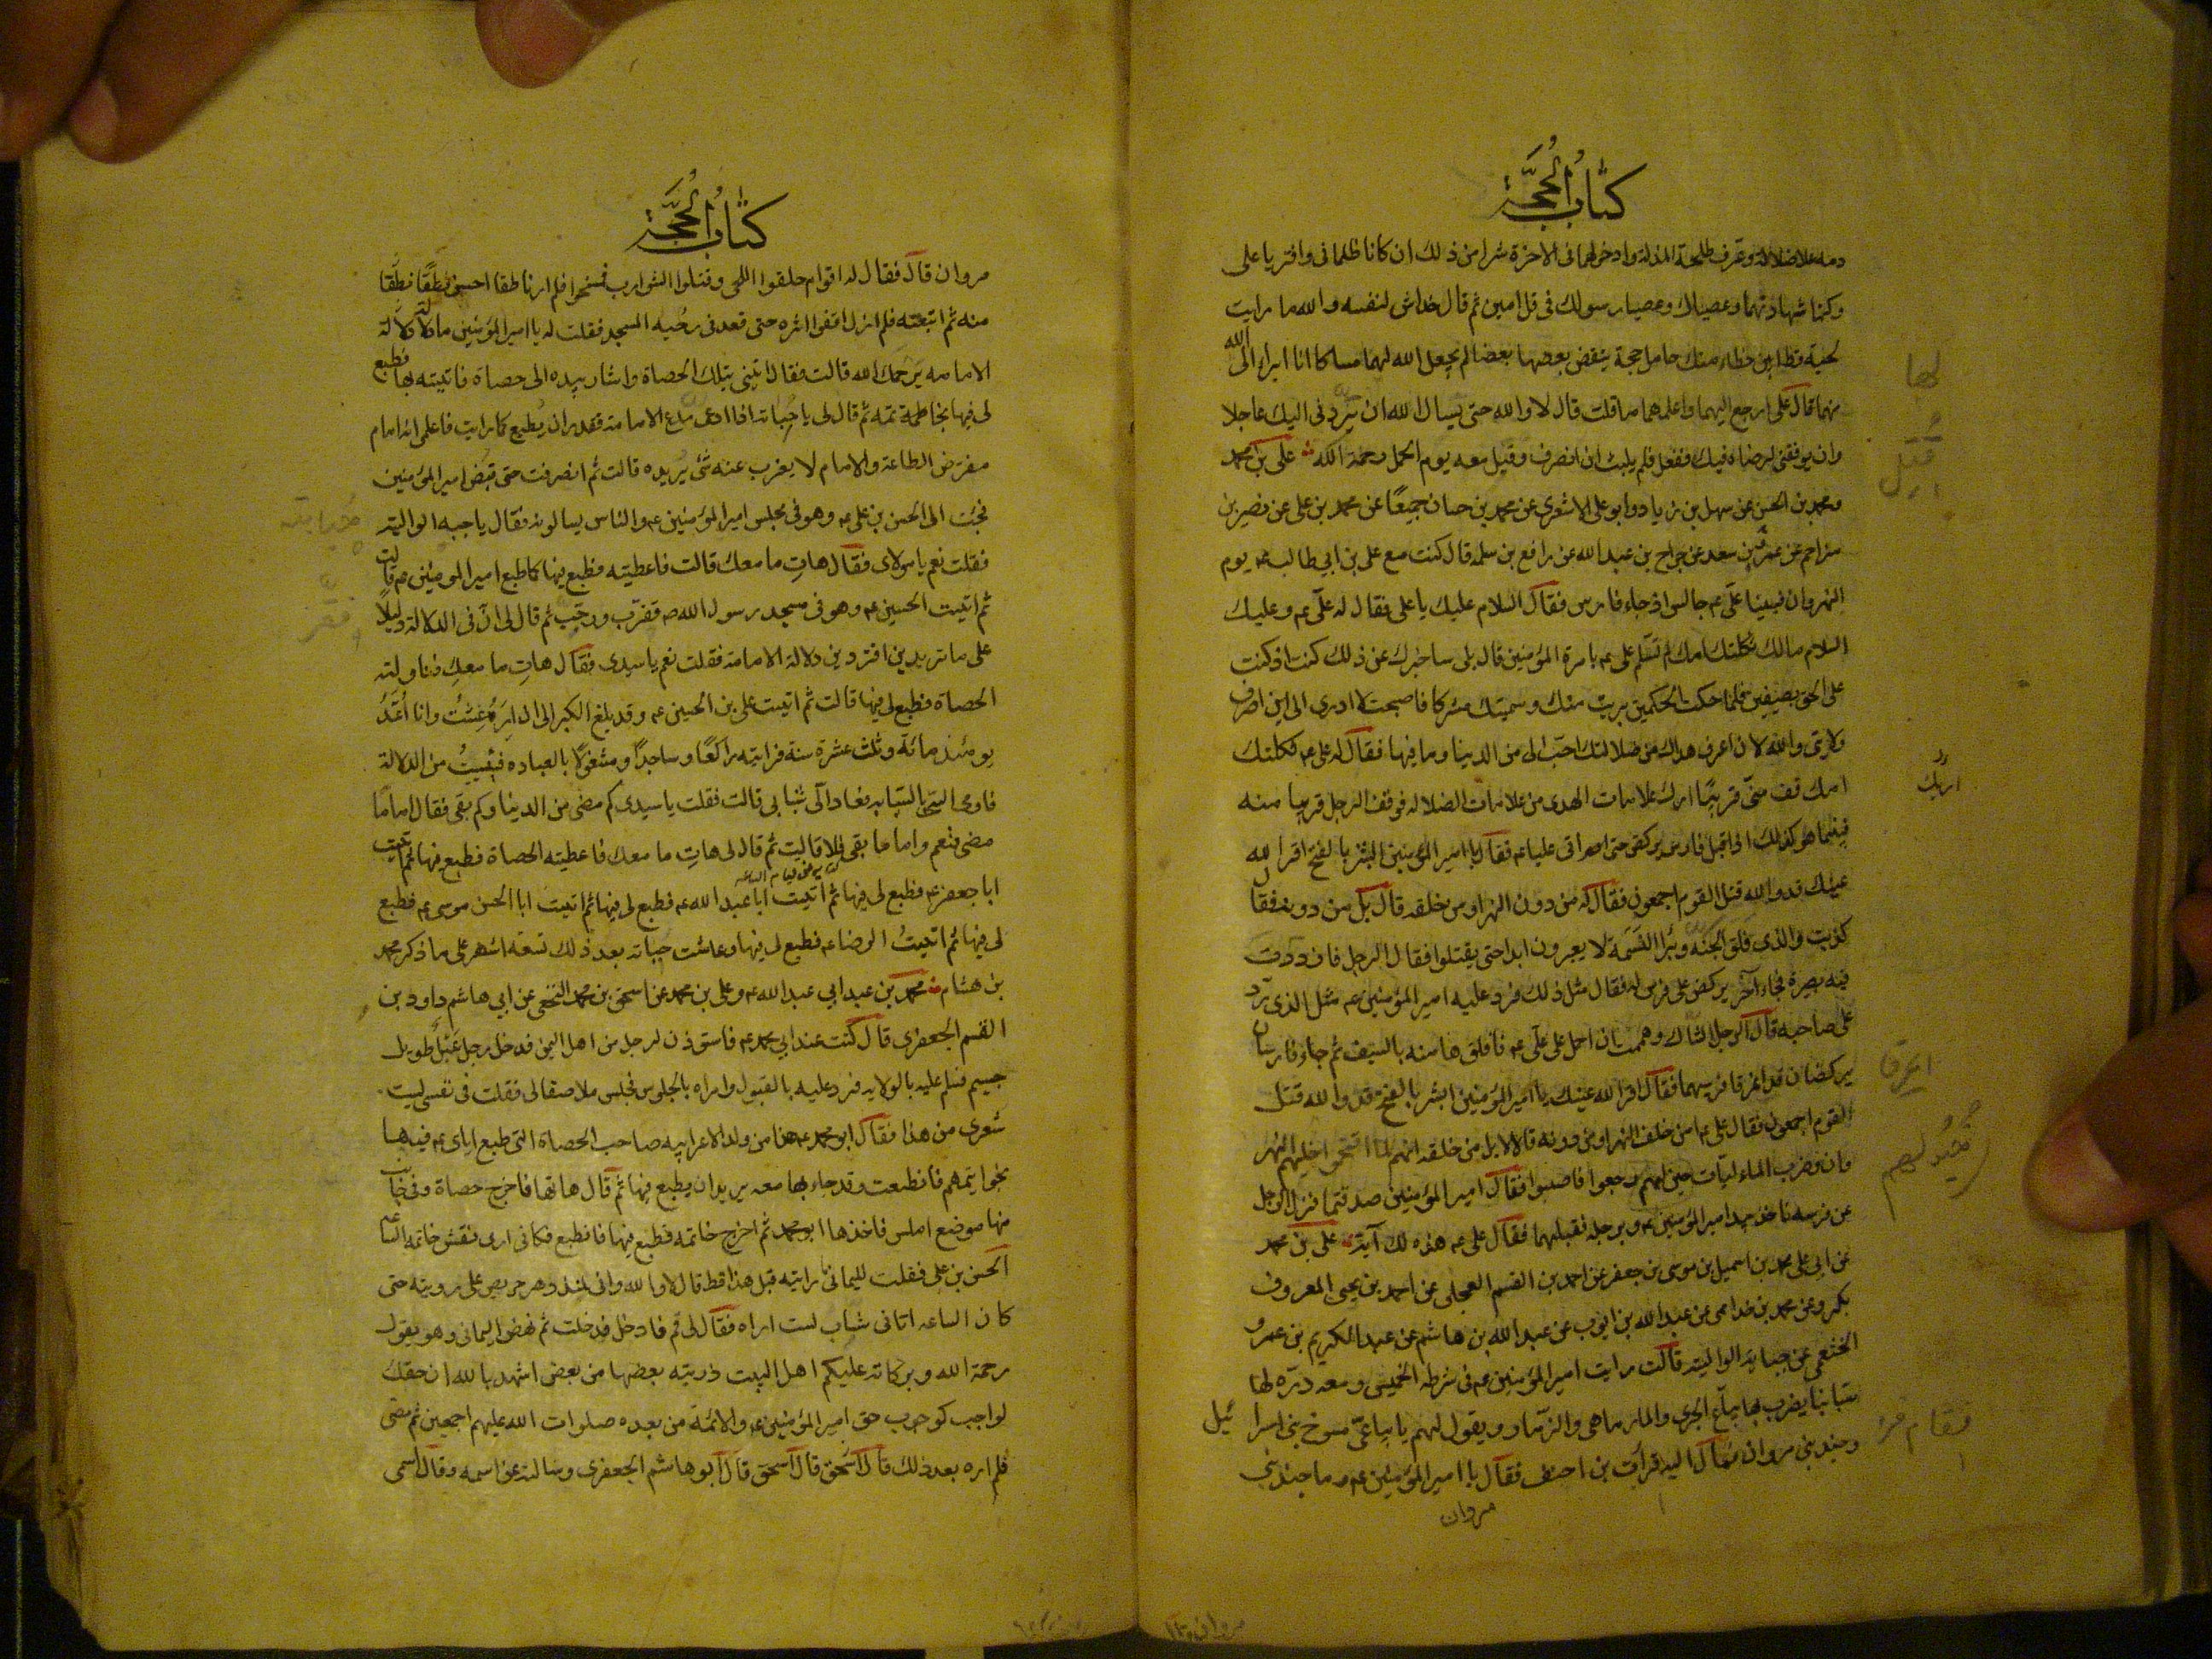 كتاب الحجة
دمه علا ضلالة وعرف طلحة المذلة وادخر لهما فى الاخرة شرا من ذلك ان كانا ظلمانى وافتريا على
وكتما شهادتهما وعصياك وعصيا رسولك فى قل امين ثم قال خداش لنفسه والله ما رايت
لحية قط ابين خطاء منك حامل حجة ينقض بعضها بعضا لم يجعل الله لهما مساكا انا ابراء الى الله
منهما قال على ارجع اليهما واعلمهما ما قلت قال لا والله حتى يسال الله ان يردنى اليك عاجلا
وان يوفقنى لرضاه فيك ففعل فلم يلبث ان انصرف وقتل معه يوم الجمل رحمة الله على بن محمد
ومحمد بن الحسن عن سهل بن زياد وابو على الاشعرى عن محمد بن حسان جميعًا عن محمد بن على عن نصر بن
مزاحم عن عمر بن سعد عن جراح بن عبدالله عن رافع بن سلمه قال كنت مع على بن ابي طالب عم يوم
النهروان فبينا علىّ عم جالس اذ جاء فارس فقال السلام عليك يا على فقال له علىّ عم وعليك
السلام مالك ثكلتك امك لم تسلم على عم بامرة المؤمنين قال بلى ساخبرك عن ذلك كنت اذ كنت
على الحق بصفين فلما حكمت الحكمين برئت منك وسميتك مشركا فاصبحت لا ادرى الى اين اصرف
ولايتى والله لان اعرف هداك من ضلالتك احبّ الى من الدينا وما فيها فقال له على عم ثكلتك
امك قف منّى قريبًا ارك علامات الهدى من علامات الضلاله فوقف الرجل قريبا منه
فبينما هو كذلك اذ اقبل فارس يركض حتى اتى عليا عم فقال يا امير المؤمنين ابشر بالفتح اقر الله
عينك قد والله قتل القوم اجمعون فقال له من دون النهر او من خلفه قال بل من دونه فقال
كذبت والذى فلق الجنه وبرا النسمة لا يعبرون ابدا حتى يقتلوا فقال الرجل فازددت
فيه بصيرة فجاء آخر يركض على فرس له فقال مثل ذلك فرد عليه امير المؤمنين عم مثل الذى ردّ
على صاحبه قال الرجل الشاك وهممت ان احمل على علّى عم فافلق هامته بالسيف ثم جاء فارسان
يركضان قد اعرقا فرسيهما فقال اقر الله عينك يا امير المؤمنين ابشر بالفتح قد والله قتل
القوم اجمعون فقال على عم امن خلف النهر او من دونه قالا لا بل من خلفه انهم لما اقتحموا خيلهم النهر
وان وضرب الماء لبات خيلهم رجعوا فاصيبوا فقال امير المؤمنين صدقتما فنزل الرجل
عن فرسه فاخذ بيد امير المؤمنين عم وبرجله فقبلهما فقال على عم هذه لك آية على بن محمد
عن ابى على محمد بن اسمعيل بن موسى بن جعفر عن احمد بن القسم العجلى عن احمد بن يحيى المعروف
بكرد عن محمد بن خداهى عن عبدالله بن ايوب عن عبدالله بن هاشم عن عبدالكريم بن عمرو
الخثعمى عن حبابة الوالبية قالت رايت امير المؤمنين عم فى شرطه الخميس ومعه درّه لها
سبابتا يضرب بها بياع الجرى والمار ماهى والزمار ويقول لهم يا بياعى مسوخ بنى اسرائيل
وجند بنى مروان فقال اليه فرات بن احنف فقال يا امير المؤمنين عم وما جند بنى
مروان
لها
قتل
اريك
اعرقا
خيولهم
فقام
كتاب الحجة
مروان قال فقال له اقوام حلقوا اللحى وفتلوا الشوارب فمسخوا فلم ار ناطقا احسن نطقًا
منه ثم اتبعته فلم ازل اقفوا اثره حتى قعد فى رحبه المسجد فقلت له يا امير المؤمنين ما دلالة
الامامه يرحمك الله قالت فقال ائتينى بتلك الحصاة واشار بيده الى حصاة فاتيته بها فطبع
لى فيها بخاتمه ثم قال لى يا حبابة اذا ادعى مدع الامامة فقدر ان يطبع كما رايت فاعلمى انه امام
مفترض الطاعة والامام لا يعزب عنه شئ يريده قالت ثم انصرفت حتى قبض امير المؤمنين
فجئت الى الحسن بن على عم وهو فى مجلس امير المؤمنين عم والناس يسالونه فقال يا حبابه الوالبية
فقلت نعم يا مولاى فقال هاتِ ما معك قالت فاعطيته فطبع فيها كما طبع امير المومنين عم قالت
ثم اتيت الحسين عم وهو فى مسجد رسول الله ص فقرّب ورحّب ثم قال لى انّ فى الدلالة دليلًا
على ما تريدين افتريدين دلالة الامامة فقلت نعم يا سيدى فقال هاتِ ما معكِ فناولته
الحصاة فطبع لى فيها قالت ثم اتيت على بن الحسين عم وقد بلغ الكبر الى ان ارعشت وانا أعدّ
يومئذ مائة وثلث عشرة سنة فرايته راكعًا وساجدًا ومشغولًا بالعباده فيئستُ من الدلالة
فاومى الىّ بالسبّابه فعاد الى شبابى قالت فقلت يا سيدى كم مضى من الدنيا وكم بقى فقال امامًا
مضى فنعم واما ما بقى فلا قالت ثم قال لى هاتِ ما معك فاعطيته الحصاة فطبع فيها ثم اتيت
ابا جعفر عم فطبع لى فيها ثم اتيت ابا عبدالله عم فطبع لى فيها ثم اتيت ابا الحسن موسى عم فطبع
لى فيها ثم اتيتُ الرضا عم فطبع لى فيها وعاشت حبابة بعد ذلك تسعة اشهر على ما ذكر محمد
بن هشام محمد بن عبد ابي عبدالله عم وعلى بن محمد عن اسحق بن محمد النخعى عن ابى هاشم داود بن
القسم الجعفرى قال كنت عند ابي محمد عم فاستوذن لرجل من اهل اليمن فدخل رجل عبل طويل
جسيم فسلم عليه بالولايه فرد عليه بالقبول وامراه بالجلوس فجلس ملاصقا لى فقلت فى نفسى ليت
شعرى من هذا فقال ابو محمد عم هذا من ولد الاعرابيه صاحب الحصاة التى طبع اباى عم فيها
بخواتيمهم فانطبعت وقد جاء بها معه يريد ان يطبع فيها ثم قال هاتها فاخرج حصاة وفى جانب
منها موضع املس فاخذها ابو محمد ثم اخرج خاتمه فطبع فيها فانطبع فكانى ارى نقش خاتمه الساعة
الحسن بن على فقلت لليمانى رايته قبل هذا قط قال لا والله وانى لمنذ دهر حريص على رويته حتى
كان الساعه اتانى شاب لست اراه فقال لى قم فادخل فدخلت ثم نهض اليمانى وهو يقول
رحمة الله وبركاته عليكم اهل البيت ذريته بعضها من بعض اشهد بالله ان حقك
لواجب كوجوب حق امير المؤمنين عم والائمة من بعده صلوات الله عليهم اجمعين ثم مضى
فلم اره بعد ذلك قال اسحق قال ابو هاشم الجعفرى وسالته عن اسمه وقال اسمى